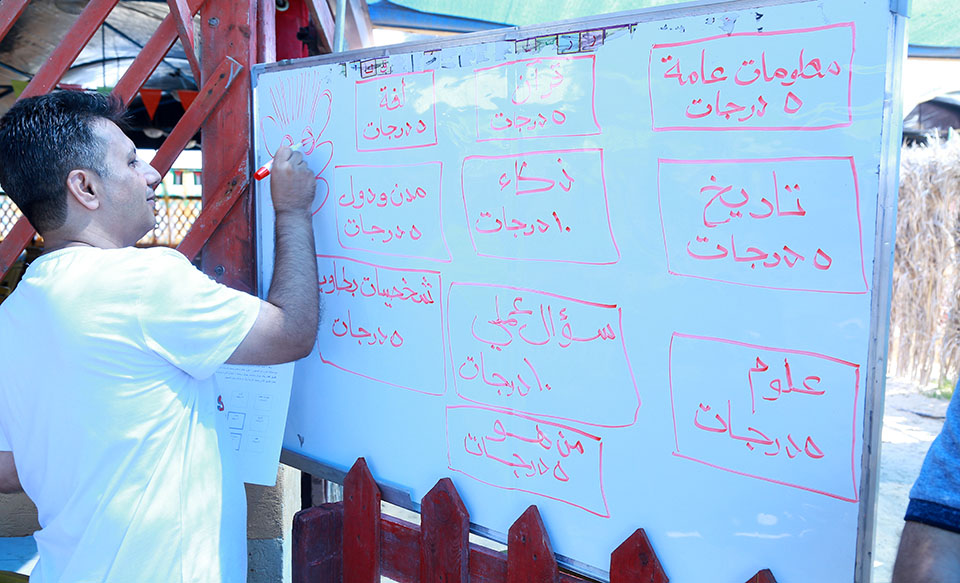 معلومات عامة
٥ درجات
قرآن
٥ درجات
لغة
٥ درجات
تاريخ
٥ درجات
ذكاء
١٠ درجات
مدن ودول
٥ درجات
علوم
٥ درجات
سؤال عملي
١٠ درجات
شخصيات
٥ درجات
من هو
٥ درجات